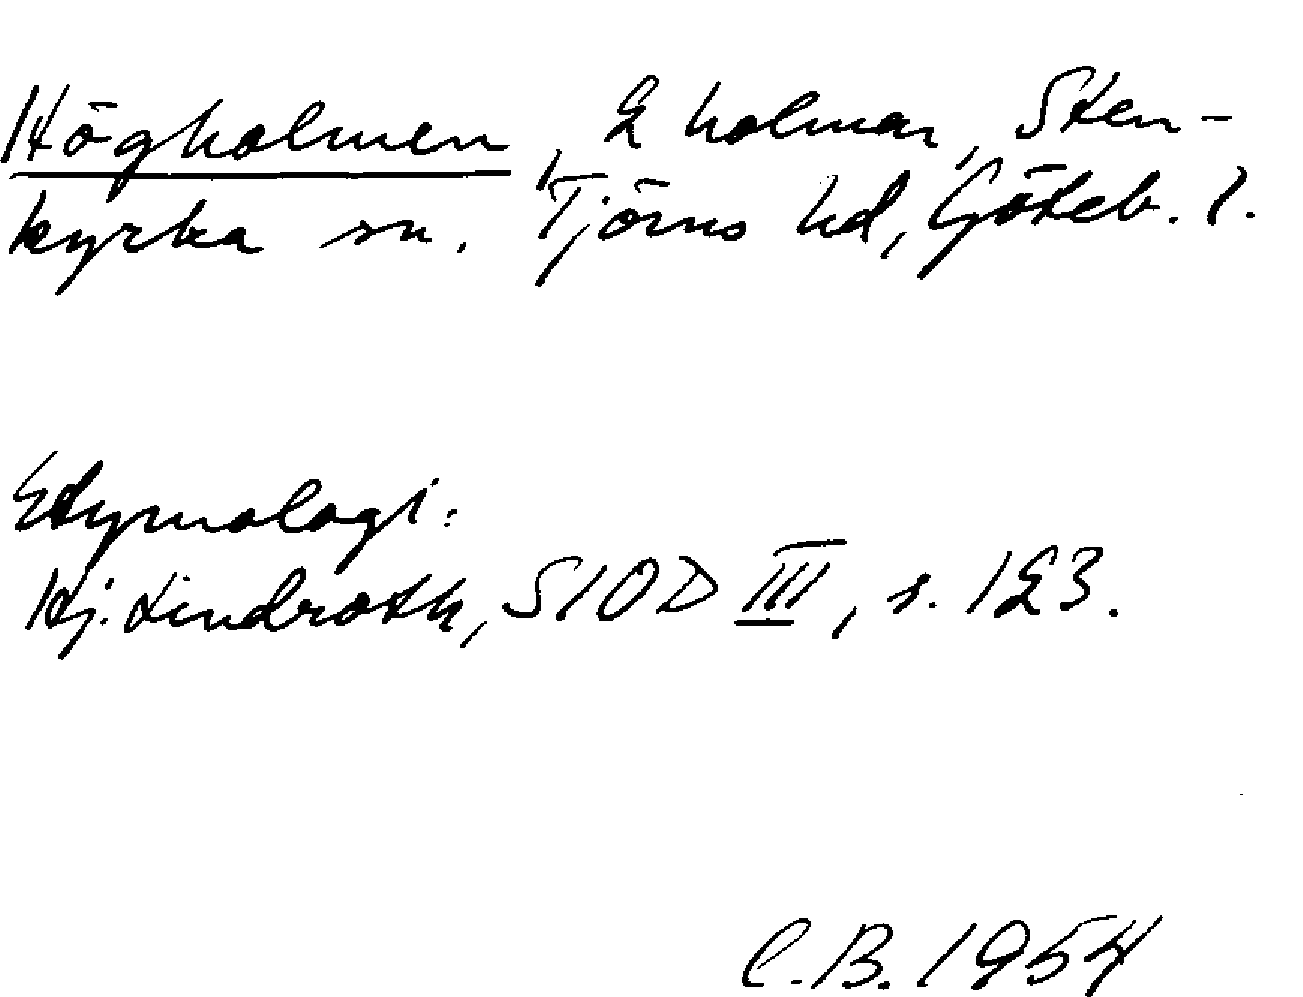 Högholmen, 2 holmar, Sten-
kyrka sn. Tjörns hd, Göteb. l.
Etymologi:
Hj. Lindroth, SIOD III, s. 123.
C.B. 1954